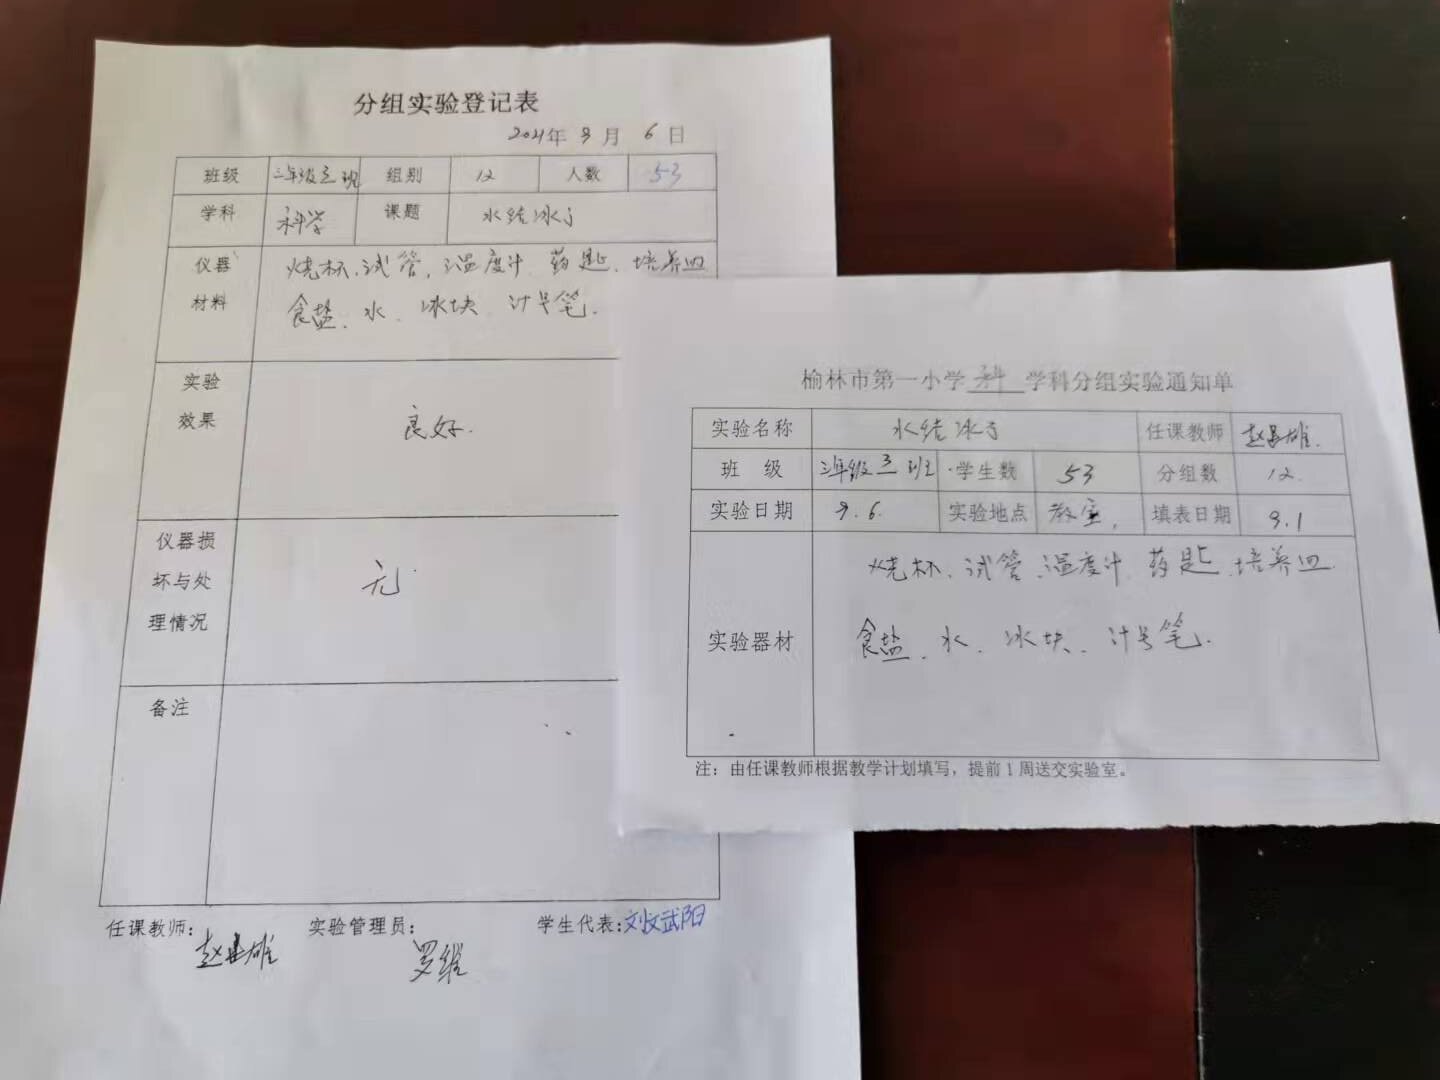 分组实验登记表
2021年 9月 6日
班级 三年级三班 组别 12 人数 53
学科 科学 课题 水结冰了
仪器 烧杯、试管、温度计、药匙、培养皿
材料 食盐、水、冰块、计号笔.
实验
效果 良好.
仪器损
坏与处
理情况 无.
备注
任课教师: 赵昌雄 实验管理员: 罗维 学生代表:刘文武阳
榆林市第一小学 科 学科分组实验通知单
实验名称 水结冰了 任课教师 赵昌雄.
班 级 三年级三班 学生数 53 分组数 12.
实验日期 9.6. 实验地点 教室, 填表日期 9.1
实验器材 烧杯、试管、温度计、药匙、培养皿.
食盐、水、冰块、计号笔.
注：由任课教师根据教学计划填写，提前1周送交实验室。